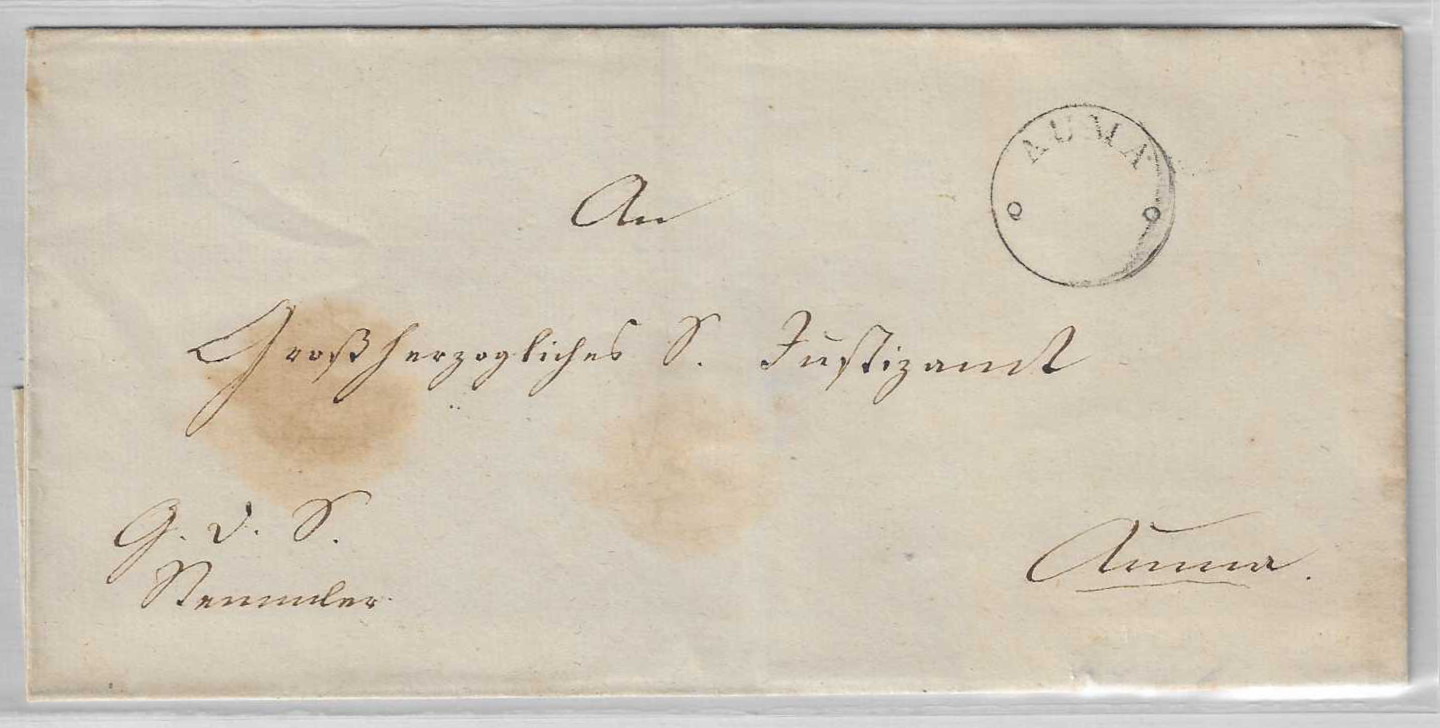 AUMA
An
Großherzogliches S. Justizamt
G. D. S.
Stemmler
Auma.